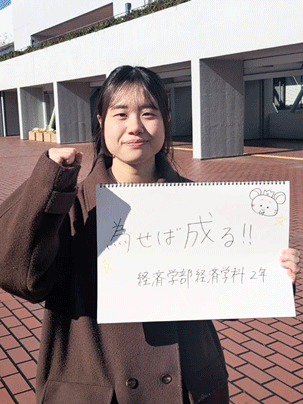 為せば成る!!
経済学部経済学科2年